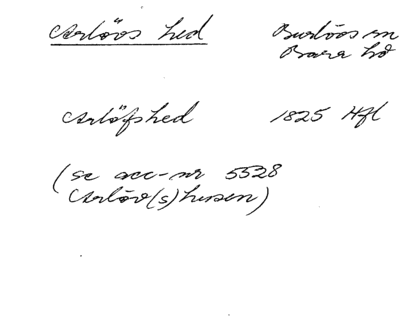 Arlövs hed
Burlövs sn
Bara hd
Arlöfshed
1825 Hfl
(se acc-nr 5528
Arlöv(s)husen)